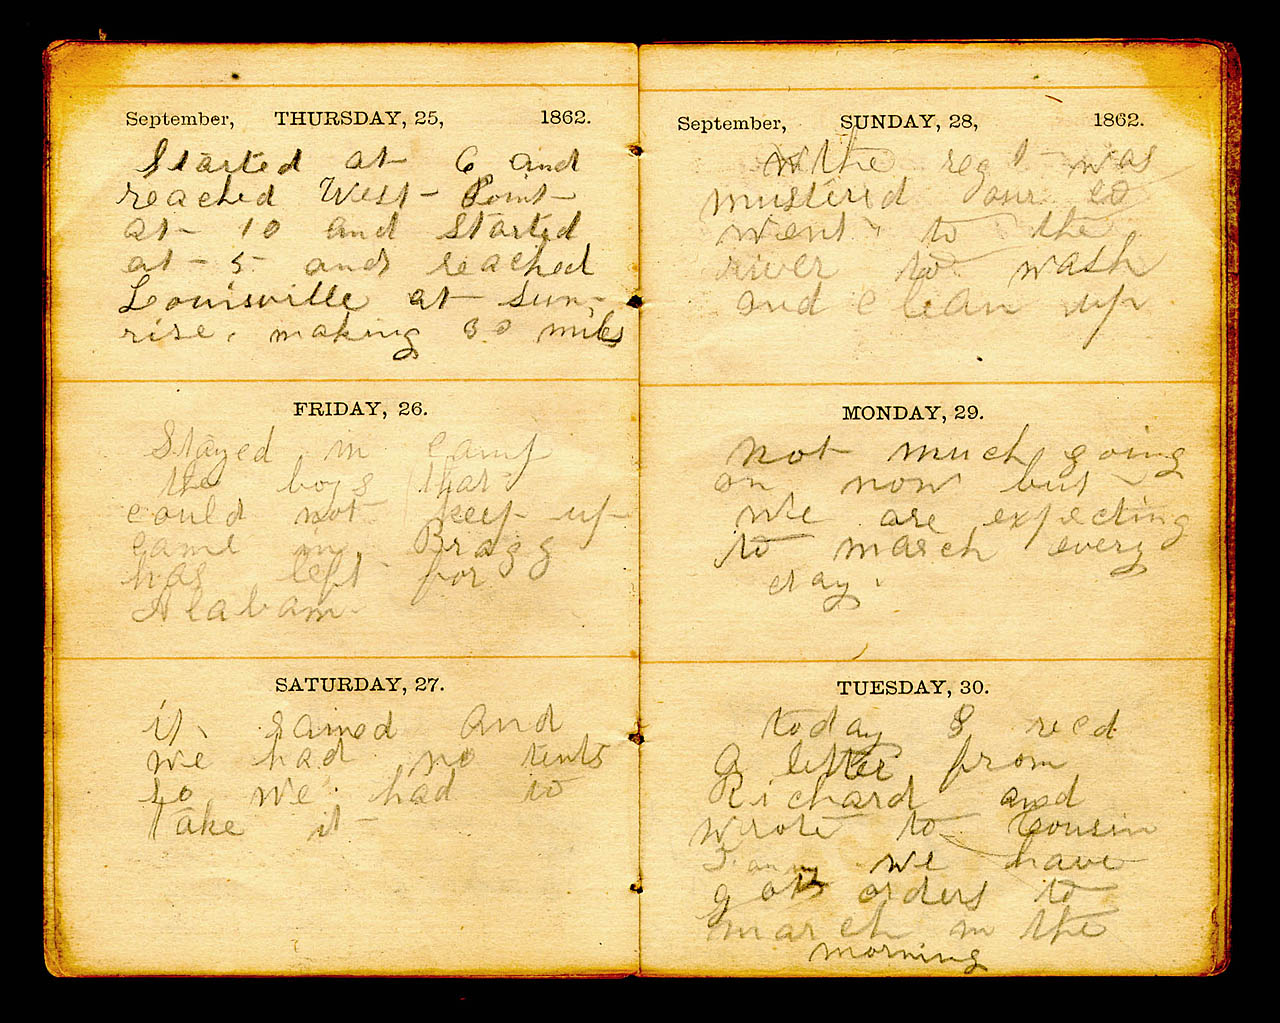 September, THURSDAY, 25, 1862.
Started at 6 and
reached West Point
at 10 and started
at 5 and reached
Louisville at Sun-
rise. making 30 miles
FRIDAY, 26.
Stayed in camp
the boys that
could not keep up
came in. Bragg
has left for
Alabam.
SATURDAY, 27.
it rained and
we had no tents
so we had to
take it
September, SUNDAY, 28, 1862.
the regt was
mustered our co
went to the
river to wash
and clean up
MONDAY, 29.
not much going
on now but
we are expecting
to march every
day.
TUESDAY, 30.
today I recd
a letter from
Richard and
wrote to Cousin
we have
got orders to
march in the
morning